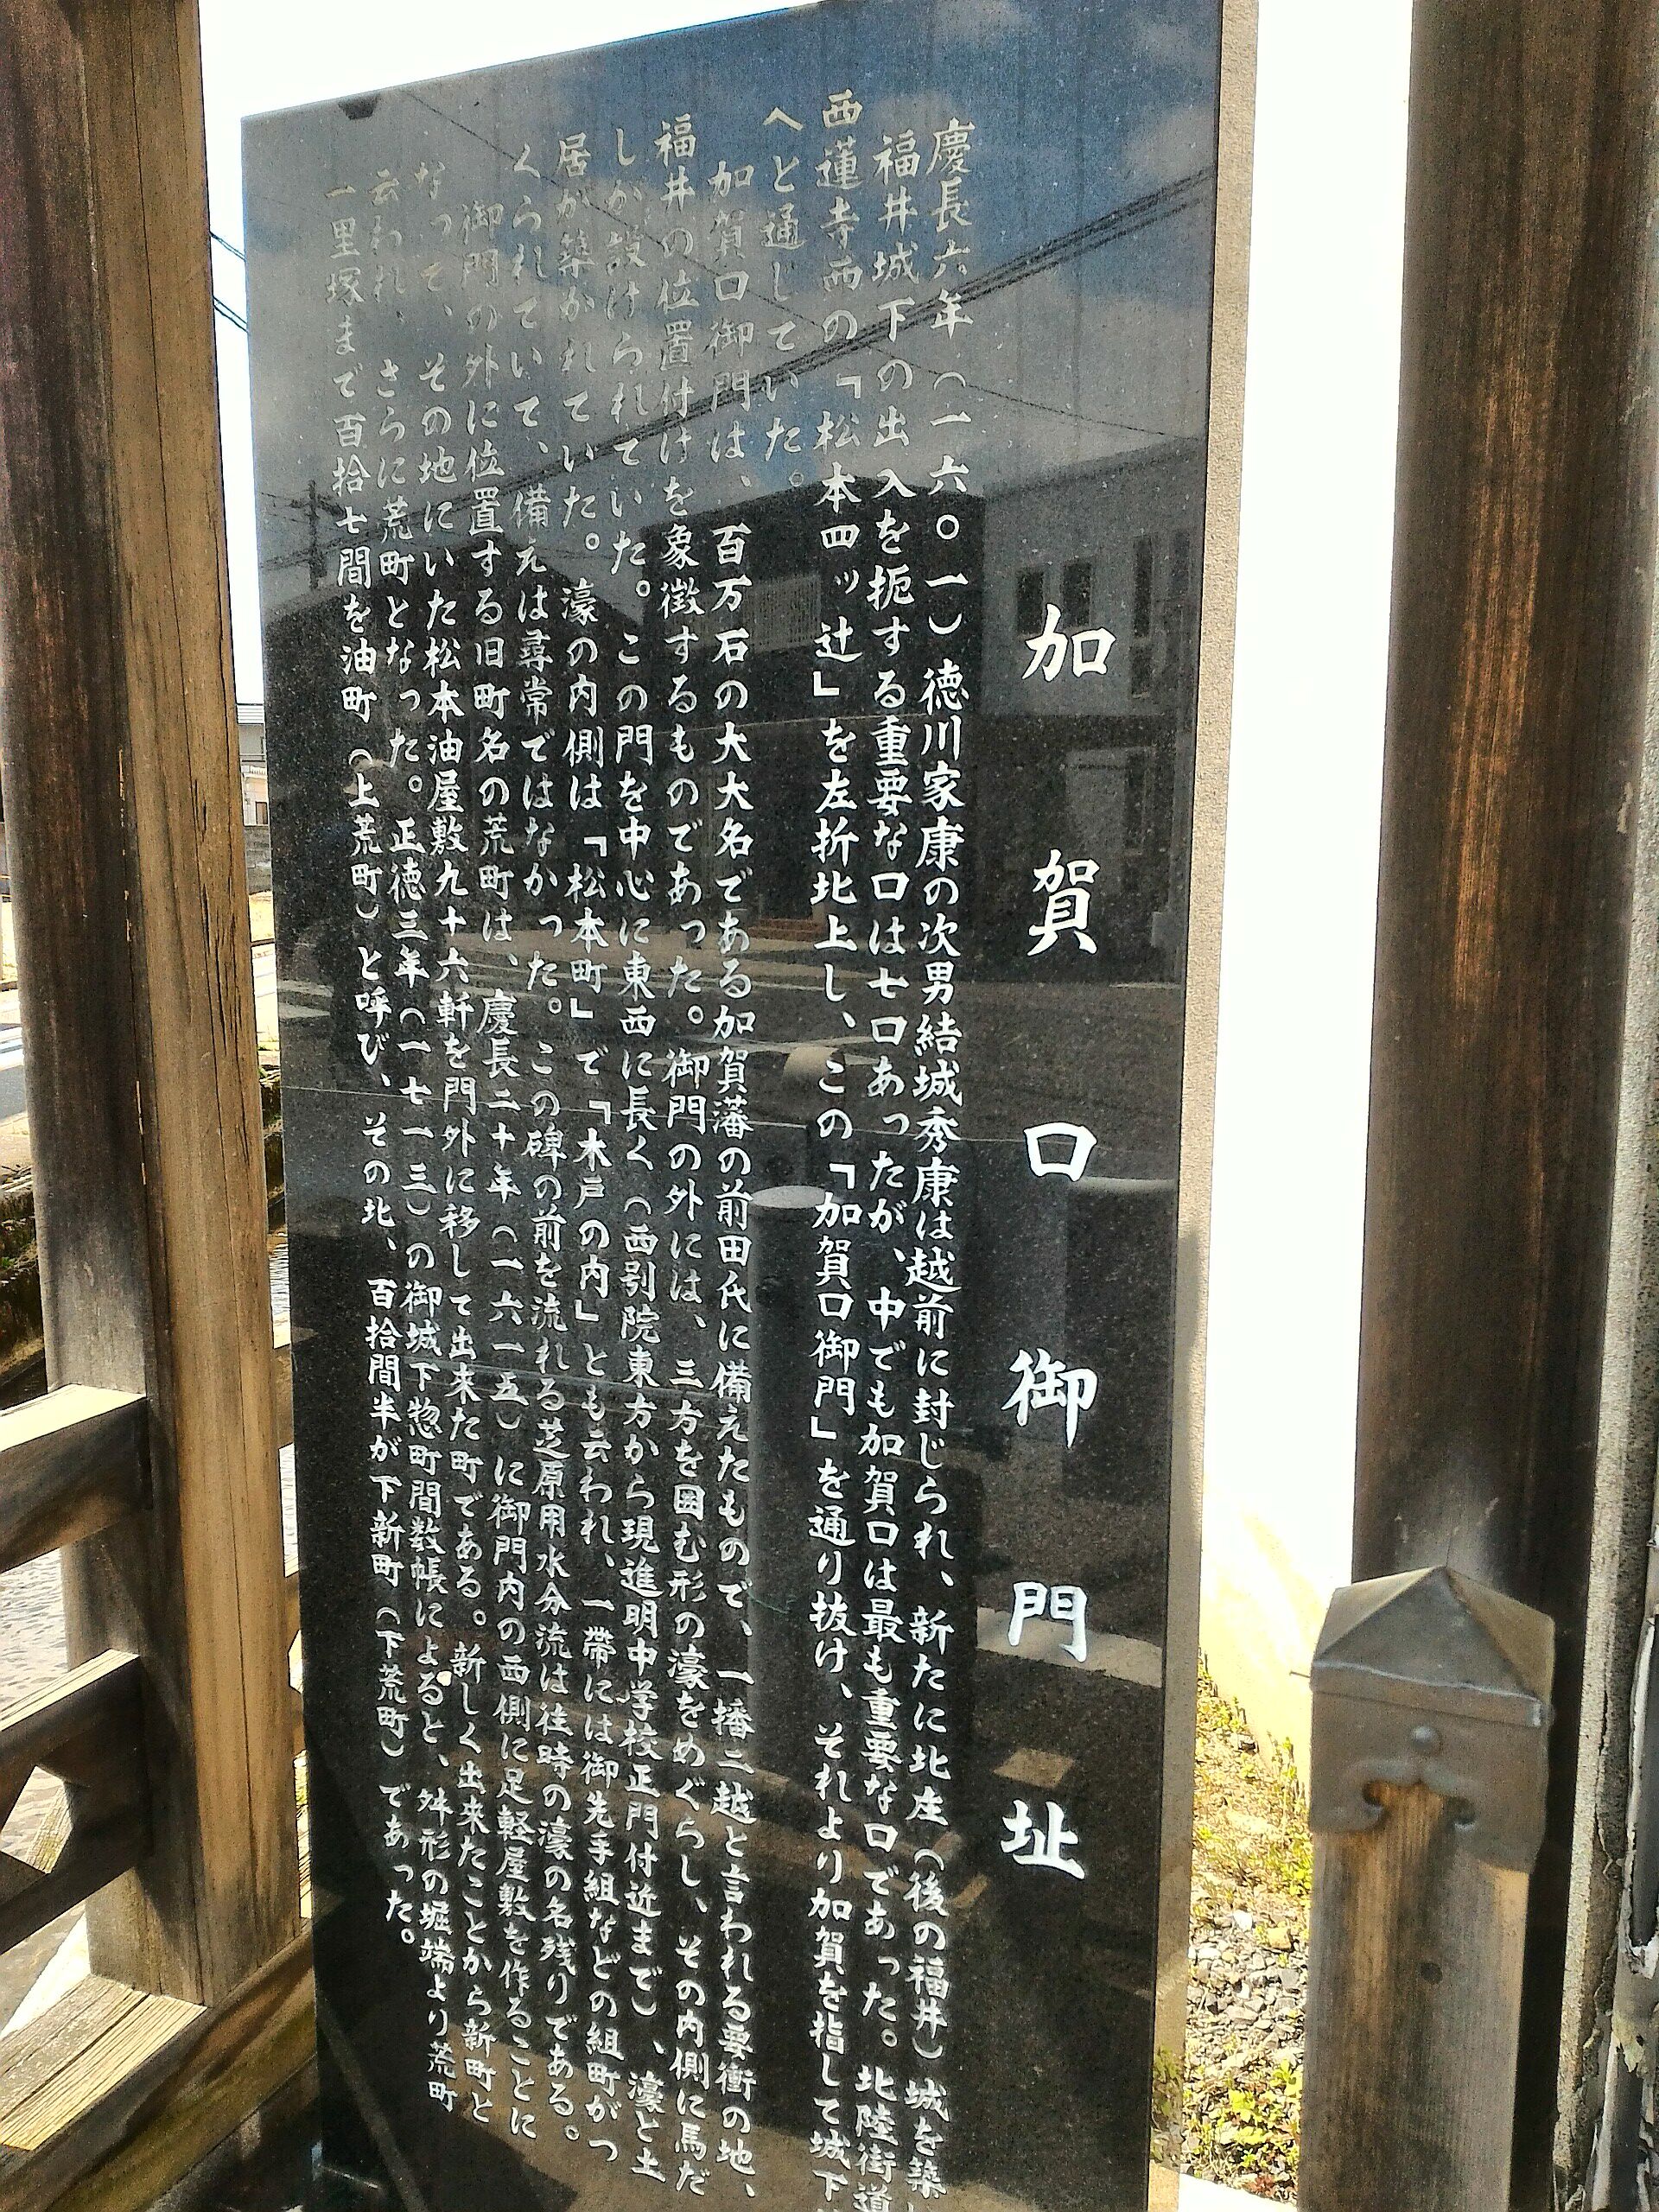 加賀口御門址
慶長六年(一六〇一)徳川家康の次男結城秀康は越前に封じられ、新たに北庄(後の福井)城を築
福井城下の出入を扼する重要な口は七口あったが、中でも加賀口は最も重要な口であった。北陸街道
西蓮寺両の「松本四ッ辻」を左折北上し、この「加賀口御門」を通り抜け、それより加賀を指して城下
へと通じていた。
加賀口御門は、百万石の大大名である加賀藩の前田氏に備えたもので、一播二越と言われる要衝の地、
福井の位置付けを象徴するものであった。御門の外には、三方を囲む形の濠をめぐらし、その内側に馬だ
しが設けられていた。この門を中心に東西に長く(西別院東方から現進明中学校正門付近まで)、濠と土
居が築かれていた。濠の内側は「松本町」で「木戸の内」とも云われ、一帯には御先手組などの組町がつ
くられていて、備えは尋常ではなかった。この碑の前を流れる芝原用水分流は往時の濠の名残りである。
御門の外に位置する旧町名の荒町は、慶長二十年(一六一五)に御門内の西側に足軽屋敷を作ることに
なって、その地にいた松本油屋敷九十六軒を門外に移して出来た町である。新しく出来たことから新町と
云われ、さらに荒町となった。正徳三年(一七一三)の御城下惣町間数帳によると、舛形の堀端より荒町
一里塚まで百拾七間を油町(上荒町)と呼び、その北、百拾間半が下新町(下荒町)であった。